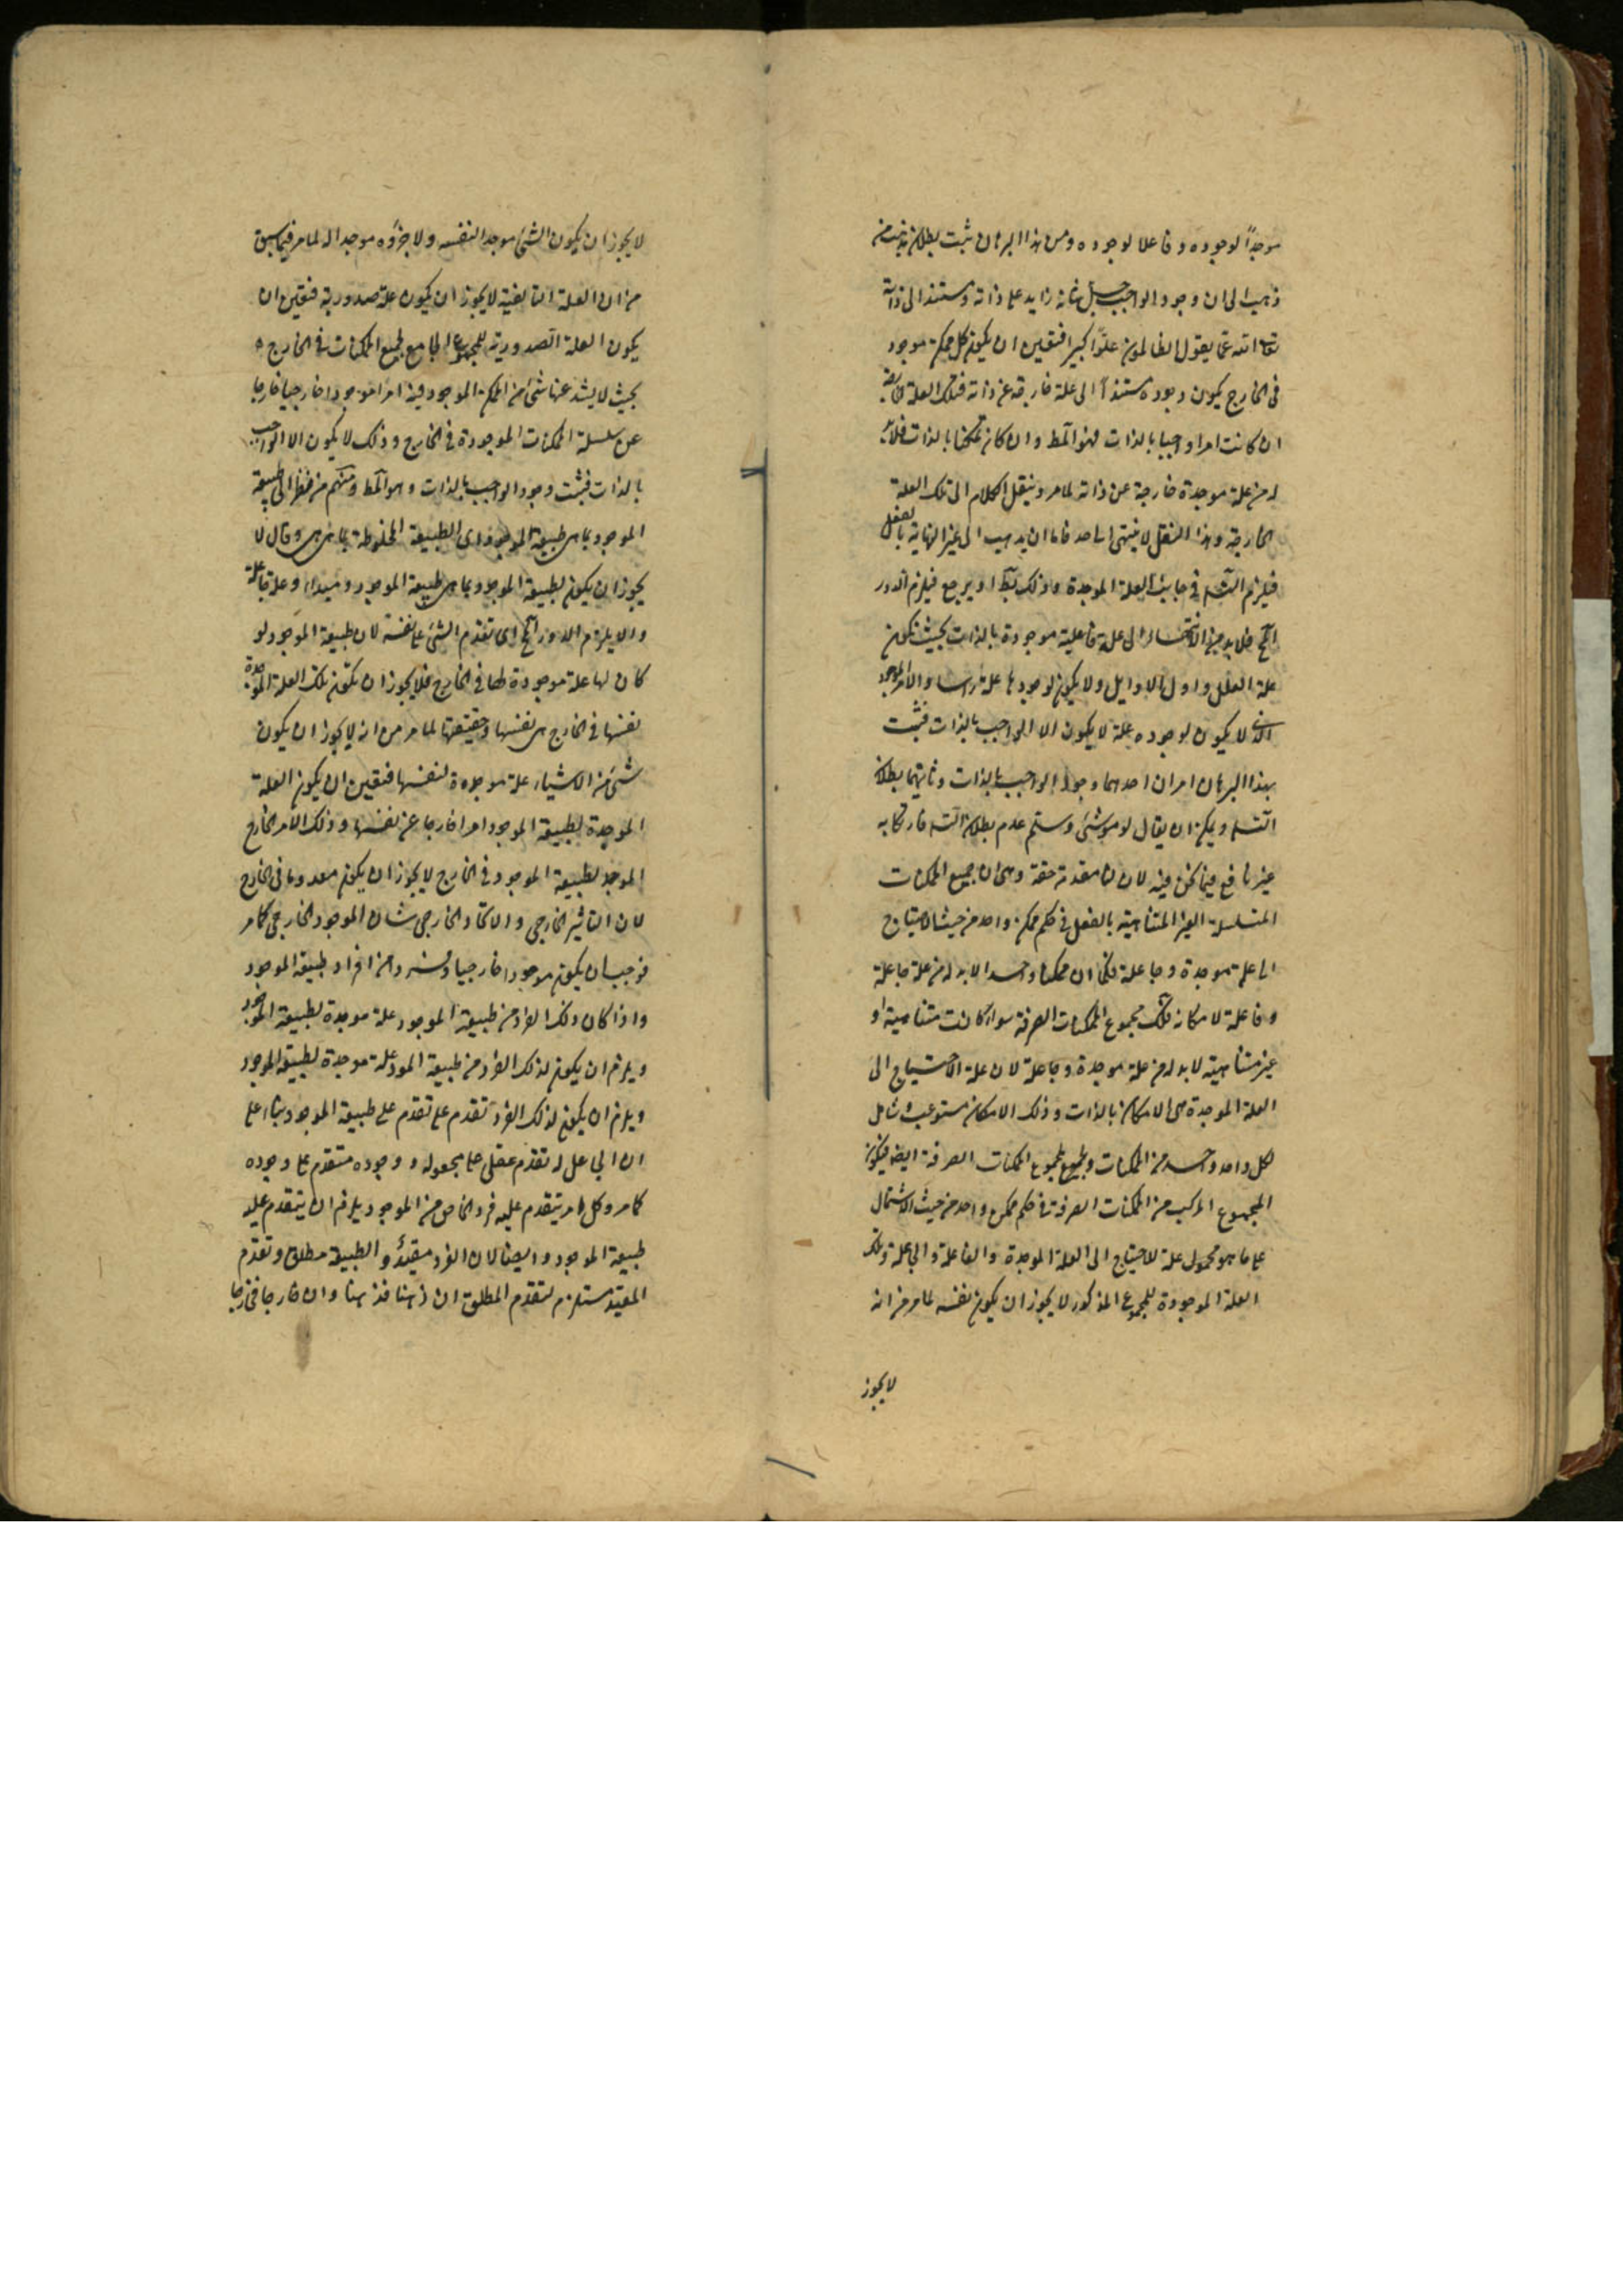 موجداً لوجوده وفاعلا لوجوده ومن هذا البرهان ثبت بطلان مذهب من
ذهب الى ان وجود الواجب جل شانه زايد على ذاته ومستند الى ذاته
تعالى الله عما يقول الظالمون علوا كبيرا فتعين ان يكون كل ممكن موجود
فى الخارج يكون وجوده مستنداً الى علة خارجة عن ذاته فتلك العلة الخارجة
ان كانت امرا واجبا بالذات فهو المط وان كان ممكنا بالذات فلابد
له من علة موجدة خارجة عن ذاته لما مر وينقل الكلام الى تلك العلة
الخارجة وهذا النقل لا ينتهى الى حد فاما ان يذهب الى غير النهاية بالفعل
فيلزم التسلسل فى جانب العلة الموجدة وذلك بط او يرجع فيلزم الدور
المح فلابد من الانتهاء الى علة فاعلية موجودة بالذات بحيث تكون
علة العلل واول الاوايل ولا يكون لوجودها علة راسا والامر الموجود
الذى لا يكون لوجوده علة لا يكون الا الواجب بالذات فثبت
بهذا البرهان امران احدهما وجود الواجب بالذات وثانيهما بطلان
التسلسل ويمكن ان يقال لو موشئ وسلم عدم بطلان التسلسل فارتكابه
غير نافع فيما نحن فيه لان لنا مقدمة حقة وهى ان جميع الممكنات
المتسلسلة الغير المتناهية بالفعل فى حكم ممكن واحد من حيث الاحتياج
الى علة موجدة وجاعلة فكما ان ممكنا واحدا لابد له من علة جاعلة
وفاعلة لامكانه فكذلك مجموع الممكنات الصرفة سواء كانت متناهية او
غير متناهية لابد له من علة موجدة وجاعلة لان علة الاحتياج الى
العلة الموجدة هى الامكان بالذات وذلك الامكان مستوعب شامل
لكل واحد واحد من الممكنات ولجميع مجموع الممكنات الصرفة ايضا فيكون
المجموع المركب من الممكنات الصرفة فى حكم ممكن واحد من حيث الاشتمال
على ما هو محمول علة للاحتياج الى العلة الموجدة والفاعلة والجاعلة وتلك
العلة الموجودة للمجموع المذكور لا يجوز ان يكون نفسه لما مر من انه
لا يجوز
لا يجوز ان يكون الشئ موجدا لنفسه ولا جزؤه موجدا له لما مر فيما سبق
من ان العلة التاليفية لا يجوز ان يكون علة صدورية فتعين ان
يكون العلة الصدورية للمجموع الجامع لجميع الممكنات فى الخارج
بحيث لا يشذ عنها شئ من الممكن الموجود فيه امرا موجودا خارجيا خارجا
عن سلسلة الممكنات الموجودة فى الخارج وذلك لا يكون الا الواجب
بالذات فثبت وجود الواجب بالذات وهو المط ومنهم من نظر الى طبيعة
الموجود بما هى طبيعة الموجود اى الطبيعة المخلوطة بما هى هى وقال لا
يجوز ان يكون لطبيعة الموجود بما هى طبيعة الموجود مبداء وعلة فاعلة
والا يلزم الدور المح اى تقدم الشئ على نفسه لان طبيعة الموجود لو
كان لها علة موجودة لها فى الخارج فلا يجوز ان تكون تلك العلة الموجدة
نفسها فى الخارج هى نفسها وحقيقتها لما مر من انه لا يجوز ان يكون
شئ من الاشياء علة موجدة لنفسها فتعين ان يكون العلة
الموجدة لطبيعة الموجود امرا خارجا عن نفسها وذلك الامر الخارج
الموجد لطبيعة الموجود فى الخارج لا يجوز ان يكون معدوما فى الخارج
لان التاثير الخارجى والايجاد الخارجى شان الموجود الخارجى كما مر
فوجب ان يكون موجودا خارجيا وفردا من افراد طبيعة الموجود
واذا كان ذلك الفرد من طبيعة الموجود علة موجدة لطبيعة الموجود
ويلزم ان يكون لذلك الفرد من طبيعة الموجود علة موجدة لطبيعة الموجود
ويلزم ان يكون لذلك الفرد تقدم على تقدم على طبيعة الموجود بناء على
ان الجاعل له تقدم عقلى على مجعوله ووجوده متقدم على وجوده
كما مر وكل ما يتقدم عليه فرد الخاص من الموجود يلزم ان يتقدم عليه
طبيعة الموجود وايضا لان الفرد مقيد والطبيعة مطلق وتقدم
المقيد مستلزم لتقدم المطلق ان ذهنا فذهنا وان خارجا فخارجا